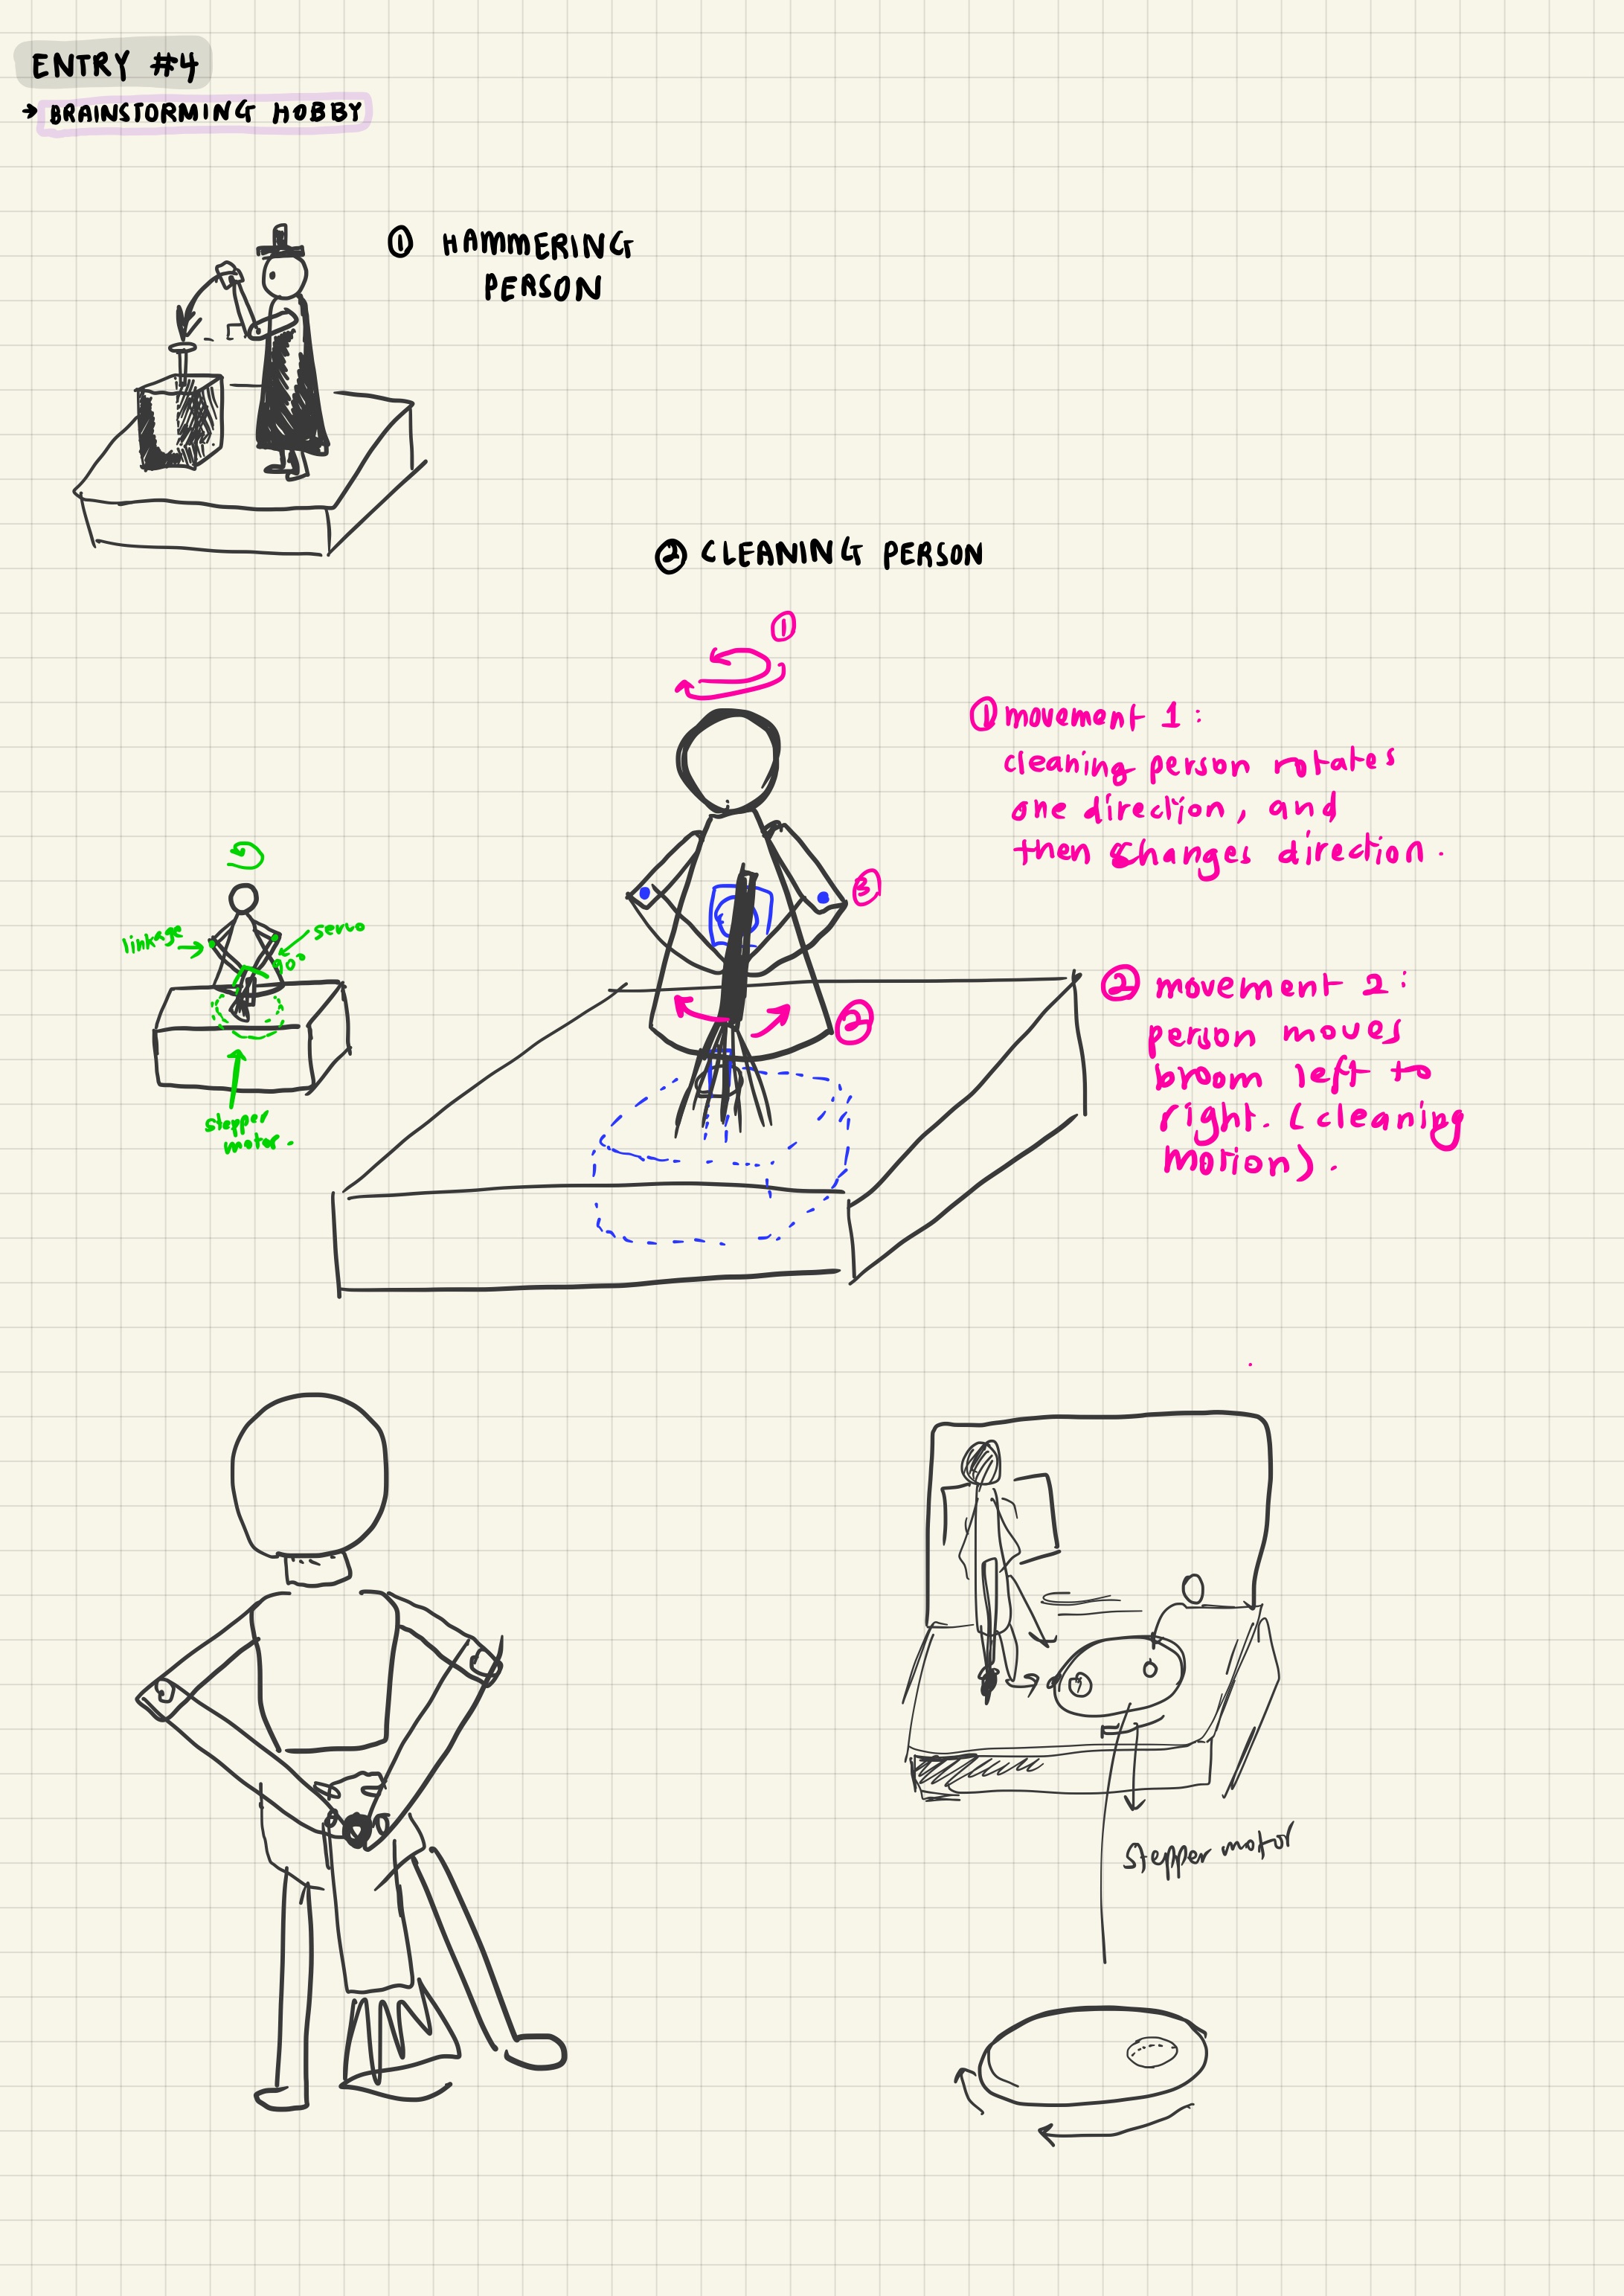 ENTRY #4
→ BRAINSTORMING HOBBY
① HAMMERING
PERSON
② CLEANING PERSON
①
① movement 1:
cleaning person rotates
one direction, and
then changes direction.
③
linkage
servo
90°
② movement 2:
person moves
broom left to
right. (cleaning
motion).
②
stepper
motor.
stepper motor